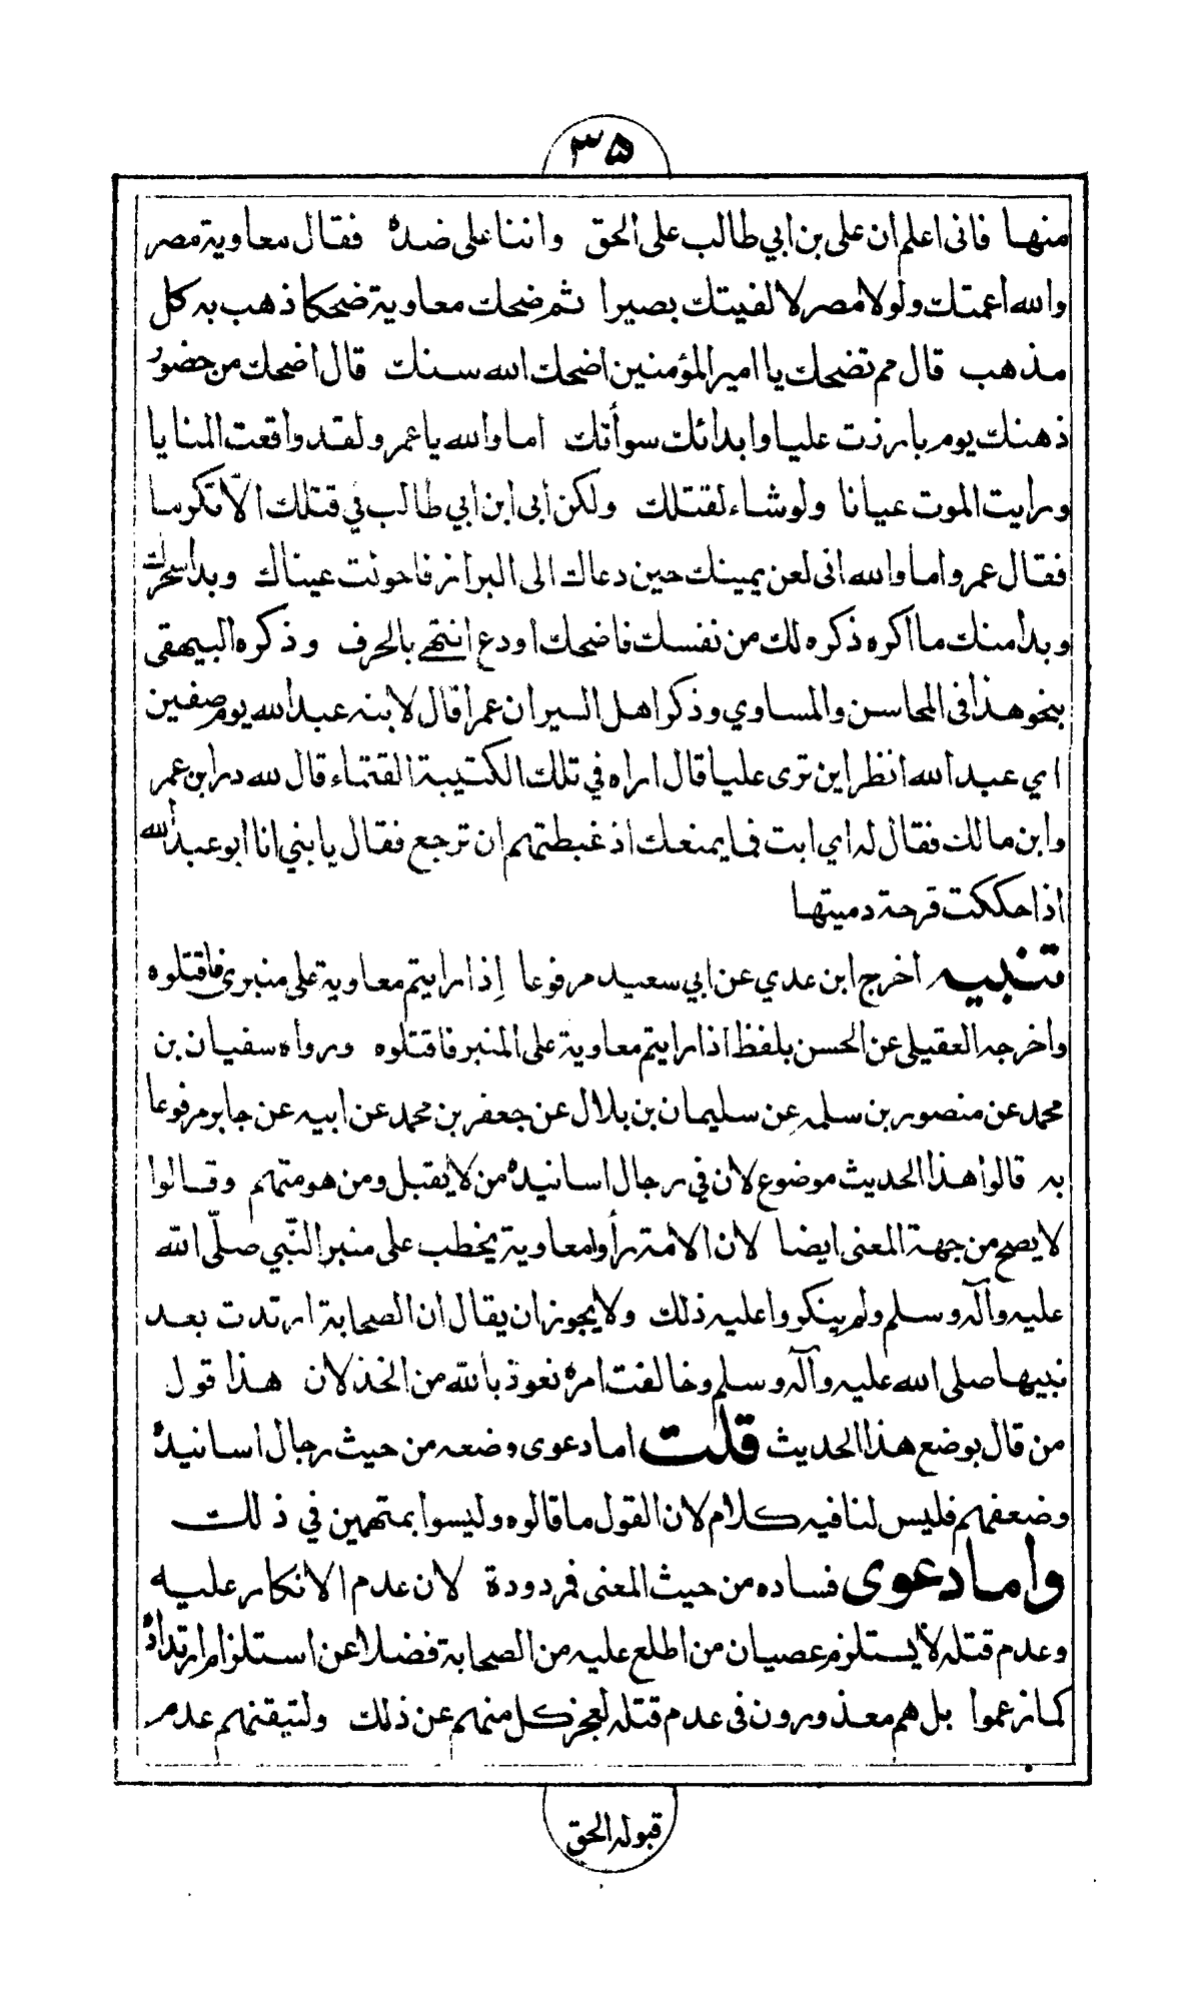 ٣۵
منها فانى اعلم ان على بن ابي طالب على الحق واننا على ضده فقال معاوية مصر
والله اعمتك ولولا مصر لالفيتك بصيرا ثم ضحك معاوية ضحكا ذهب به كل
مذهب قال مم تضحك يا امير المؤمنين اضحك الله سنك قال اضحك من حضور
ذهنك يوم بارزت عليا وابدائك سوأتك اما والله يا عمرو لقد واقعت المنايا
ورايت الموت عيانا ولو شاء لقتلك ولكن أبى ابن ابي طالب في قتلك الّا تكرما
فقال عمرو اما والله انى لعن يمينك حين دعاك الى البراز فاحولت عيناك وبدا سحرك
وبدا منك ما اكره ذكره لك من نفسك فاضحك او دع انتهى بالحرف وذكره البيهقى
بنحو هذا فى المحاسن والمساوي وذكر اهل السير ان عمرا قال لابنه عبد الله يوم صفين
اي عبد الله انظر اين ترى عليا قال اراه في تلك الكتيبة القتماء قال لله در ابن عمر
وابن مالك فقال له اي ابت فما يمنعك اذ غبطتهم ان ترجع فقال يا بني انا ابو عبد الله
اذا حككت قرحة دميتها
تنبيه اخرج ابن عدي عن ابي سعيد مرفوعا إذا رايتم معاوية على منبرى فاقتلوه
واخرجه العقيلى عن الحسن بلفظ اذا رايتم معاوية على المنبر فاقتلوه ورواه سفيان بن
محمد عن منصور بن سلمه عن سليمان بن بلال عن جعفر بن محمد عن ابيه عن جابر مرفوعا
به قالوا هذا الحديث موضوع لان في رجال اسانيده من لا يقبل ومن هو متهم وقالوا
لا يصح من جهة المعنى ايضا لان الامة رأوا معاوية يخطب على منبر النّبي صلّى الله
عليه وآله وسلم ولم ينكروا عليه ذلك ولا يجوز ان يقال ان الصحابة ارتدت بعد
نبيها صلى الله عليه وآله وسلم وخالفت امره نعوذ بالله من الخذلان هذا قول
من قال بوضع هذا الحديث قلت اما دعوى وضعه من حيث رجال اسانيده
وضعفهم فليس لنا فيه كلام لان القول ما قالوه وليسوا بمتهمين في ذلك
واما دعوى فساده من حيث المعنى فمردودة لان عدم الانكار عليه
وعدم قتله لا يستلزم عصيان من اطلع عليه من الصحابة فضلا عن استلزام ارتداده
كما زعموا بل هم معذورون فى عدم قتله لعجز كل منهم عن ذلك ولتيقنهم عدم
قبوله الحق